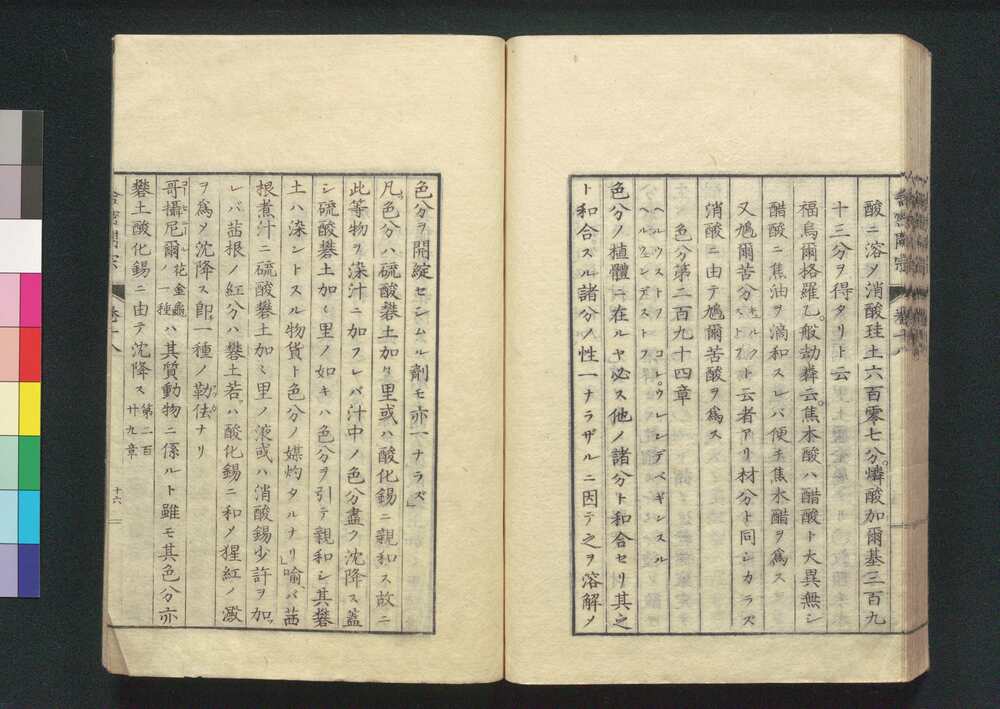 酸ニ溶ノ消酸珪土六百零七分燐酸加爾基三百九
十三分ヲ得タリト云
福烏爾格羅乙般劫舜云焦木酸ハ醋酸ト大異無シ
醋酸ニ焦油ヲ滴和スレバ便チ焦木醋ヲ爲ス
又鳩爾苦分キュルクストオフト云者アリ材分ト同シカラズ
消酸ニ由テ鳩爾苦酸ヲ爲ス
色分第二百九十四章
ヘルウストフ コレウレンデベギンスル
ヘルウェンデストフ
色分ノ植體ニ在ルヤ必ス他ノ諸分ト和合セリ其之
ト和合スル諸分ノ性一ナラザルニ因テ之ヲ溶解ノ
色分ヲ開綻セシムル劑モ亦一ナラズ
凡色分ハ硫酸礬土加々里或ハ酸化錫ニ親和ス故ニ
此等物ヲ染汁ニ加フレバ汁中ノ色分盡ク沈降ス蓋
シ硫酸礬土加々里ノ如キハ色分ヲ引テ親和シ其礬
土ハ染シトスル物貨ト色分ノ媒灼タルナリ喩バ茜
根煮汁ニ硫酸礬土加々里ノ液或ハ消酸錫少許ヲ加
レバ茜根ノ紅分ハ礬土若ハ酸化錫ニ和ノ猩紅ノ澱
ヲ爲ノ沈降ス即一種ノ勒佉ナリ
哥攝尼爾花金龜ノ一種ハ其質動物ニ係ルト雖モ其色分亦
礬土酸化錫ニ由テ沈降ス第二百廿九章
十六